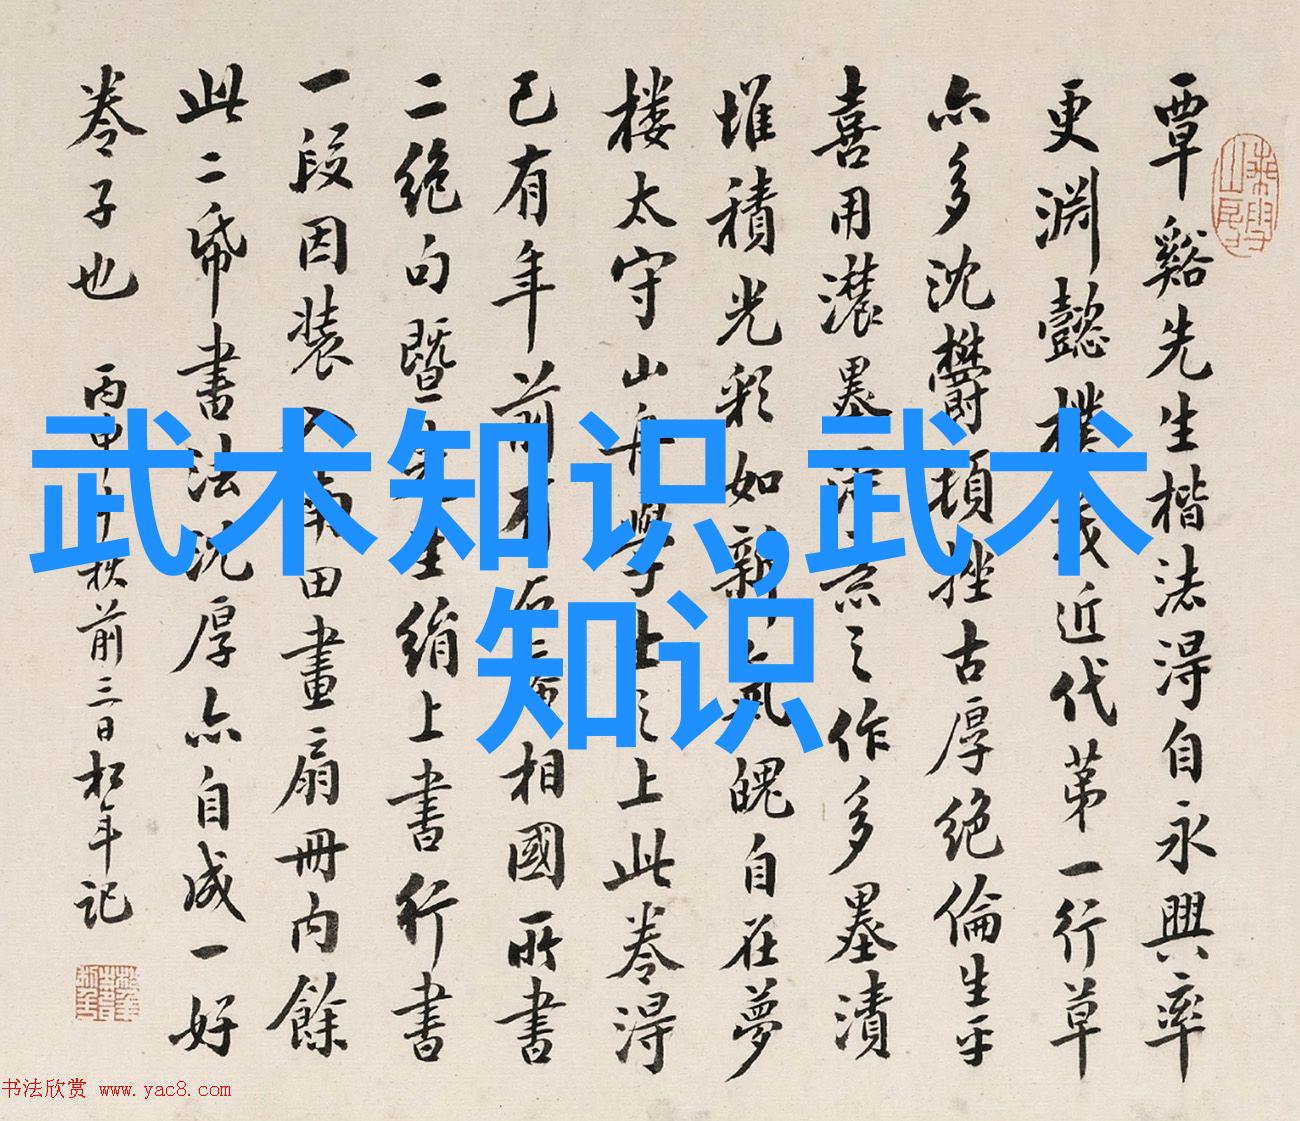 覃谿先生楷法淂自永興率
更淵懿樸茂近代苐一行草
亦多沈欝頓挫古厚絶倫生平
喜用濃墨之作多墨漬
堆積光彩如新氣魄自在夢
楼太守山舟學士之上此卷淂
已有年前相國所書
二絶句暨先生絹上書行書
一段因裝入南田畫扇冊内餘
此二帋書法沈厚亦自成一好
卷子也 丙申秋前三日松年記
武术知识,武术
知识
书法欣赏 www.yac8.com